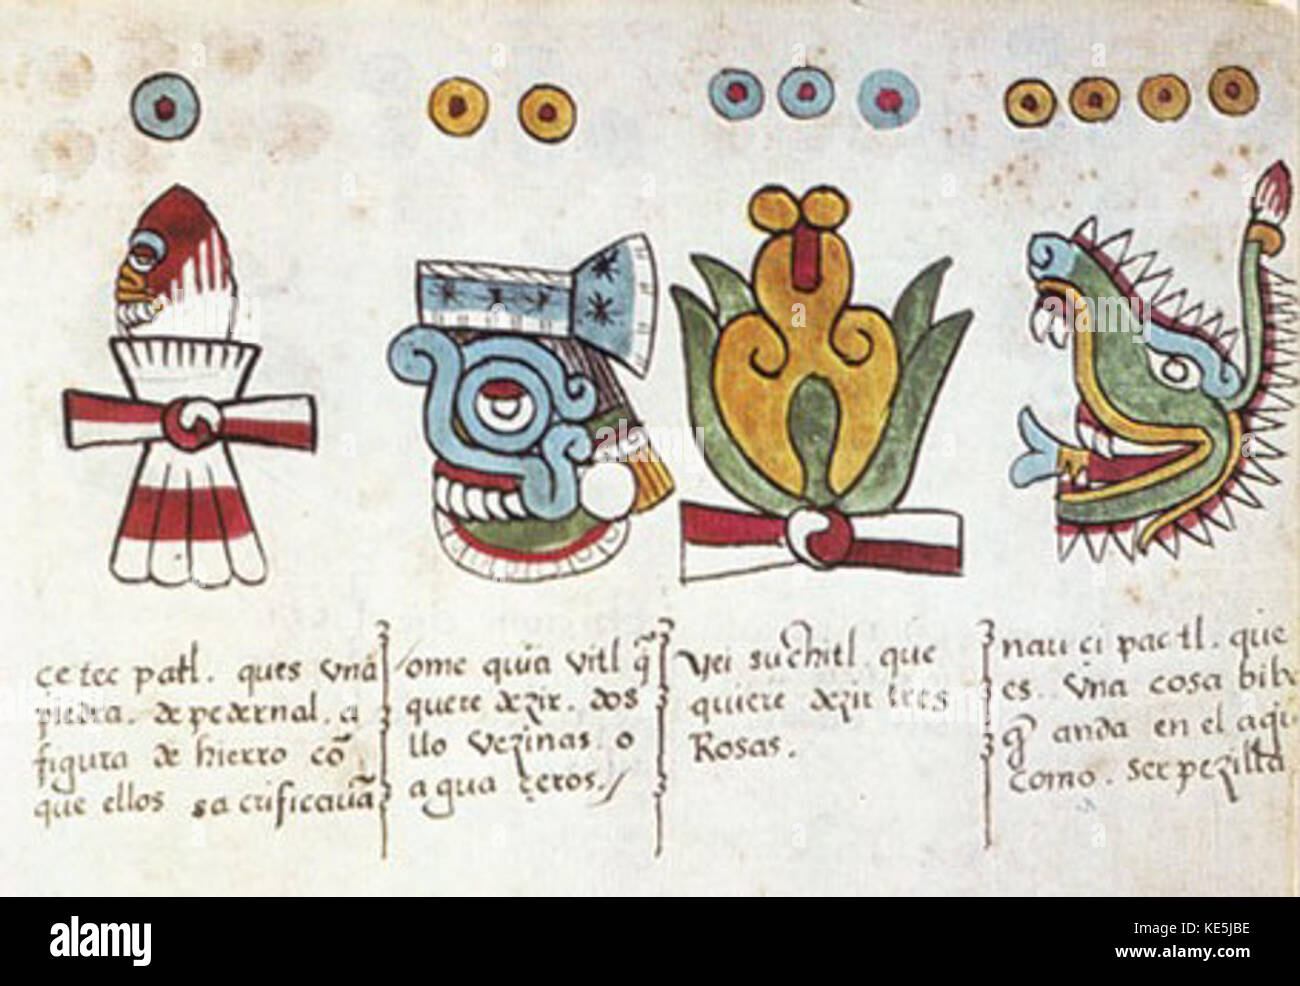 çe tec patl. ques vna
piedra. de pedernal. a
figura de hierro cō
que ellos sacrificauā
ome quia vitl q̄
quere dezir. dos
llo vezinas. o
agua çeros./
yei suchitl. que
quiere dezir tres
Rosas.
nau ci pactl. que
es. vna cosa bib
q̄ anda en el agu
como. serpezilla
a alamy stock photo
KE5JBE
www.alamy.com